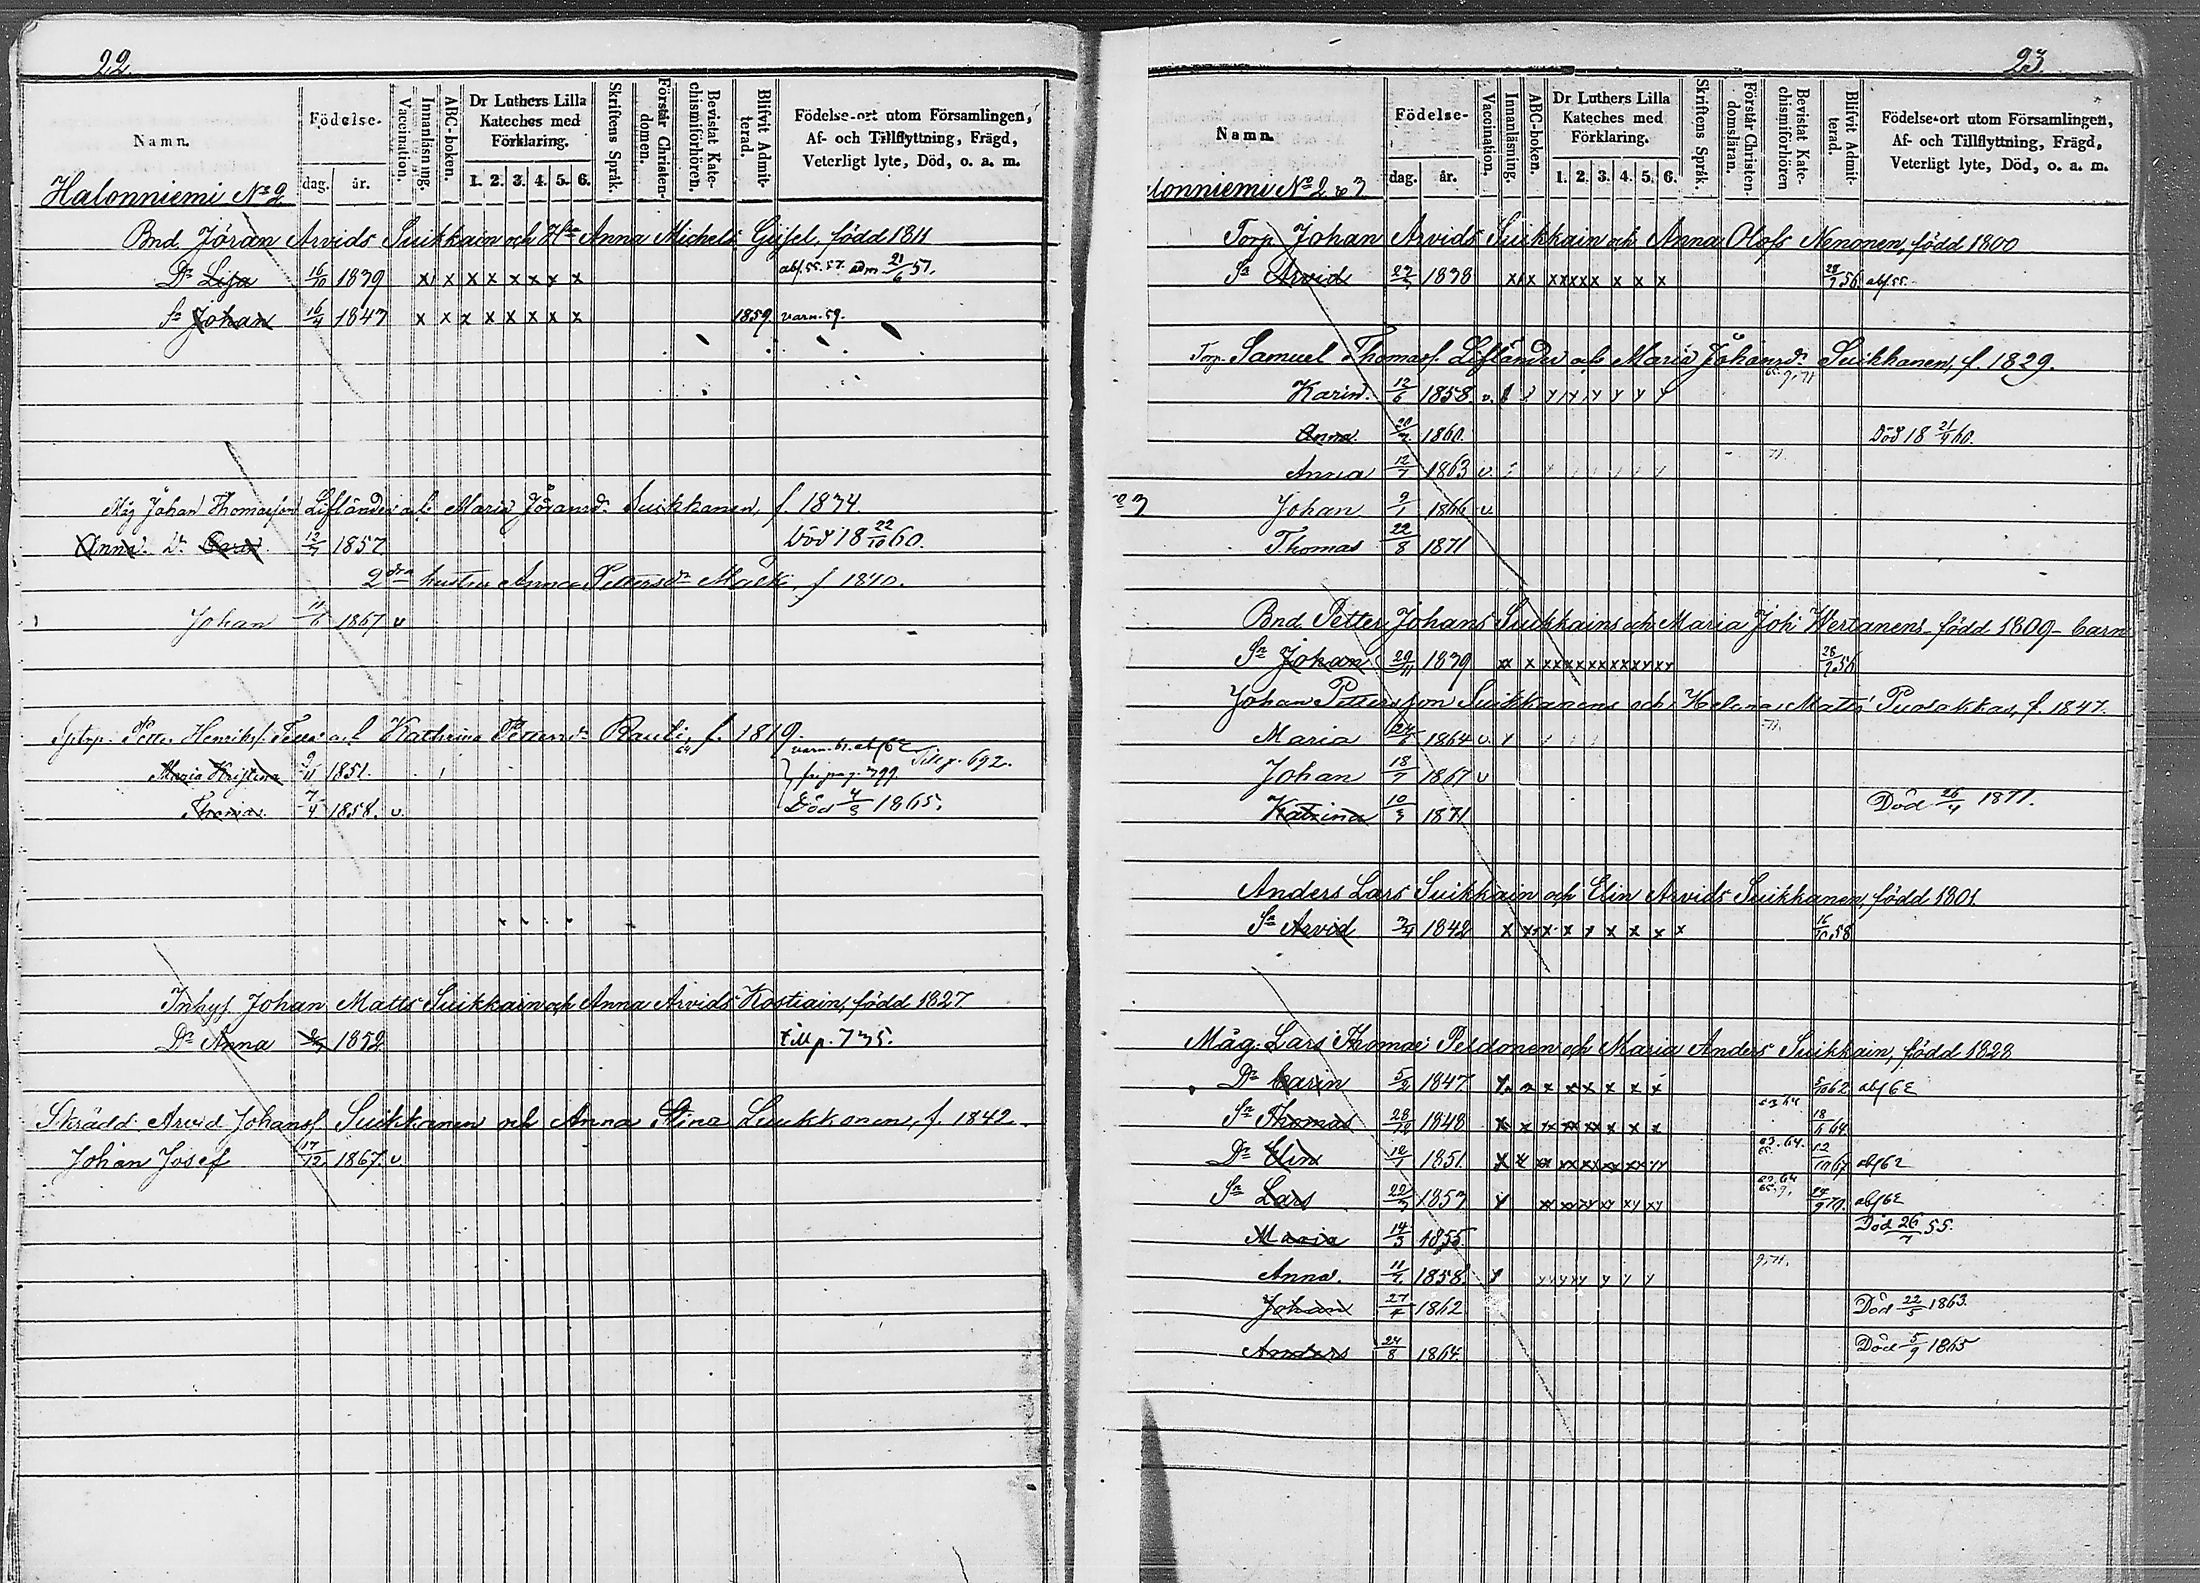 22.
Namn.
Födelse-
dag. år.
Vaccination.
Innanläsning.
ABC-boken.
Dr Luthers Lilla Kateches med Förklaring.
1. 2. 3. 4. 5. 6.
Skriftens Språk.
Förstår Christendomen.
Bevistat Katechismiförhören.
Blifvit Admitterad.
Födelse-ort utom Församlingen, Af- och Tillflyttning, Frägd, Veterligt lyte, Död, o. a. m.
Halonniemi No 2
Bnd Jöran Arvids Suikkain och Hu Anna Michels Gissel, född 1811
Dr Lisa 16/10 1839 x x x x x x x x abs. 55. 57. adm 21/6 57.
Sn Johan 16/4 1847 x x x x x x x x 1859. varn. 59.
Måg Johan Thomasson Lifländer och Maria Jöransdr Suikkanen, f. 1834.
Anna Dr 12/7 1857 Död 18 22/10 60.
2dra hustru Anna Pettersdr f 1840.
Johan 11/6 1867 v
Petter Henriks. och Kathrina Pettersdr Rauti, f. 1819.
Maria Kristina 9/11 1851. varn. 61. abs 62 Till p. 692.
fr. pag. 399.
Thomas 7/4 1858. v. Död 4/3 1865.
Inhys Johan Matts Suikkain och Anna Arvids Kostiain, född 1827
Dr Anna 1852 till p. 735.
Skrädd. Arvid Johans. Suikkanen och Anna Stina Luukkonen, f. 1842.
Johan Josef 17/12 1867. v.
23.
Namn.
Födelse-
dag. år.
Vaccination.
Innanläsning.
ABC-boken.
Dr Luthers Lilla Kateches med Förklaring.
1. 2. 3. 4. 5. 6.
Skriftens Språk.
Förstår Christendomsläran.
Bevistat Katechismiförhören
Blifvit Admitterad.
Födelse-ort utom Församlingen, Af- och Tillflyttning, Frägd, Veterligt lyte, Död, o. a. m.
lonniemi No 2 o 3
Torp Johan Arvids Suikkain och Anna Olofs Nenonen, född 1800
Sn Arvid 1838 x x x x x x x x x x 56 abs. 55.
Torp. Samuel Thomass. Lifländer och Maria Johansdr Suikkanen, f. 1829.
Karin. 12/6 1858. v.
Anna 1860. Död 18 21/9 60.
Anna 12/7 1863 v.
Johan 9/1 1866 v
Thomas 22/8 1871
Bnd Petter Johans Suikkains och Maria Joh: Wertanens född 1809 barn
Sn Johan 29/11 1839 xx x xx xx xx xx xx xx 28/9 56
Johan Pettersson Suikkanens och Helena Matts Puolakkas, f. 1847.
Maria 1864 v.
Johan 18/7 1867 v
Katrina 10/3 1871 Död 26/4 1871.
Anders Lars Suikkain och Elin Arvids Suikkanen, född 1801
Sn Arvid 3/4 1842 x x x x x x x x x 16/10 58
Måg: Lars Thomas Peldonen och Maria Anders Suikkain, född 1828
Dr Carin 5/2 1847 x x x x x x x x 62 abs 62
Sn Thomas 28/12 1848 x x xx xx xx x x x 63 64. 18/6 64
Dr Elin 12/1 1851 x x xx xx xx xx xx 63. 64. 65. 67 abs 62
Sn Lars 1853 y xx xx xx xy xy 63. 64 65. 70. abs 62
Maria 14/3 1855. Död 26/7 55.
Anna. 1858.
Johan 27/4 1862 Död 22/5 1863.
Anders 24/8 1864. Död 5/9 1865